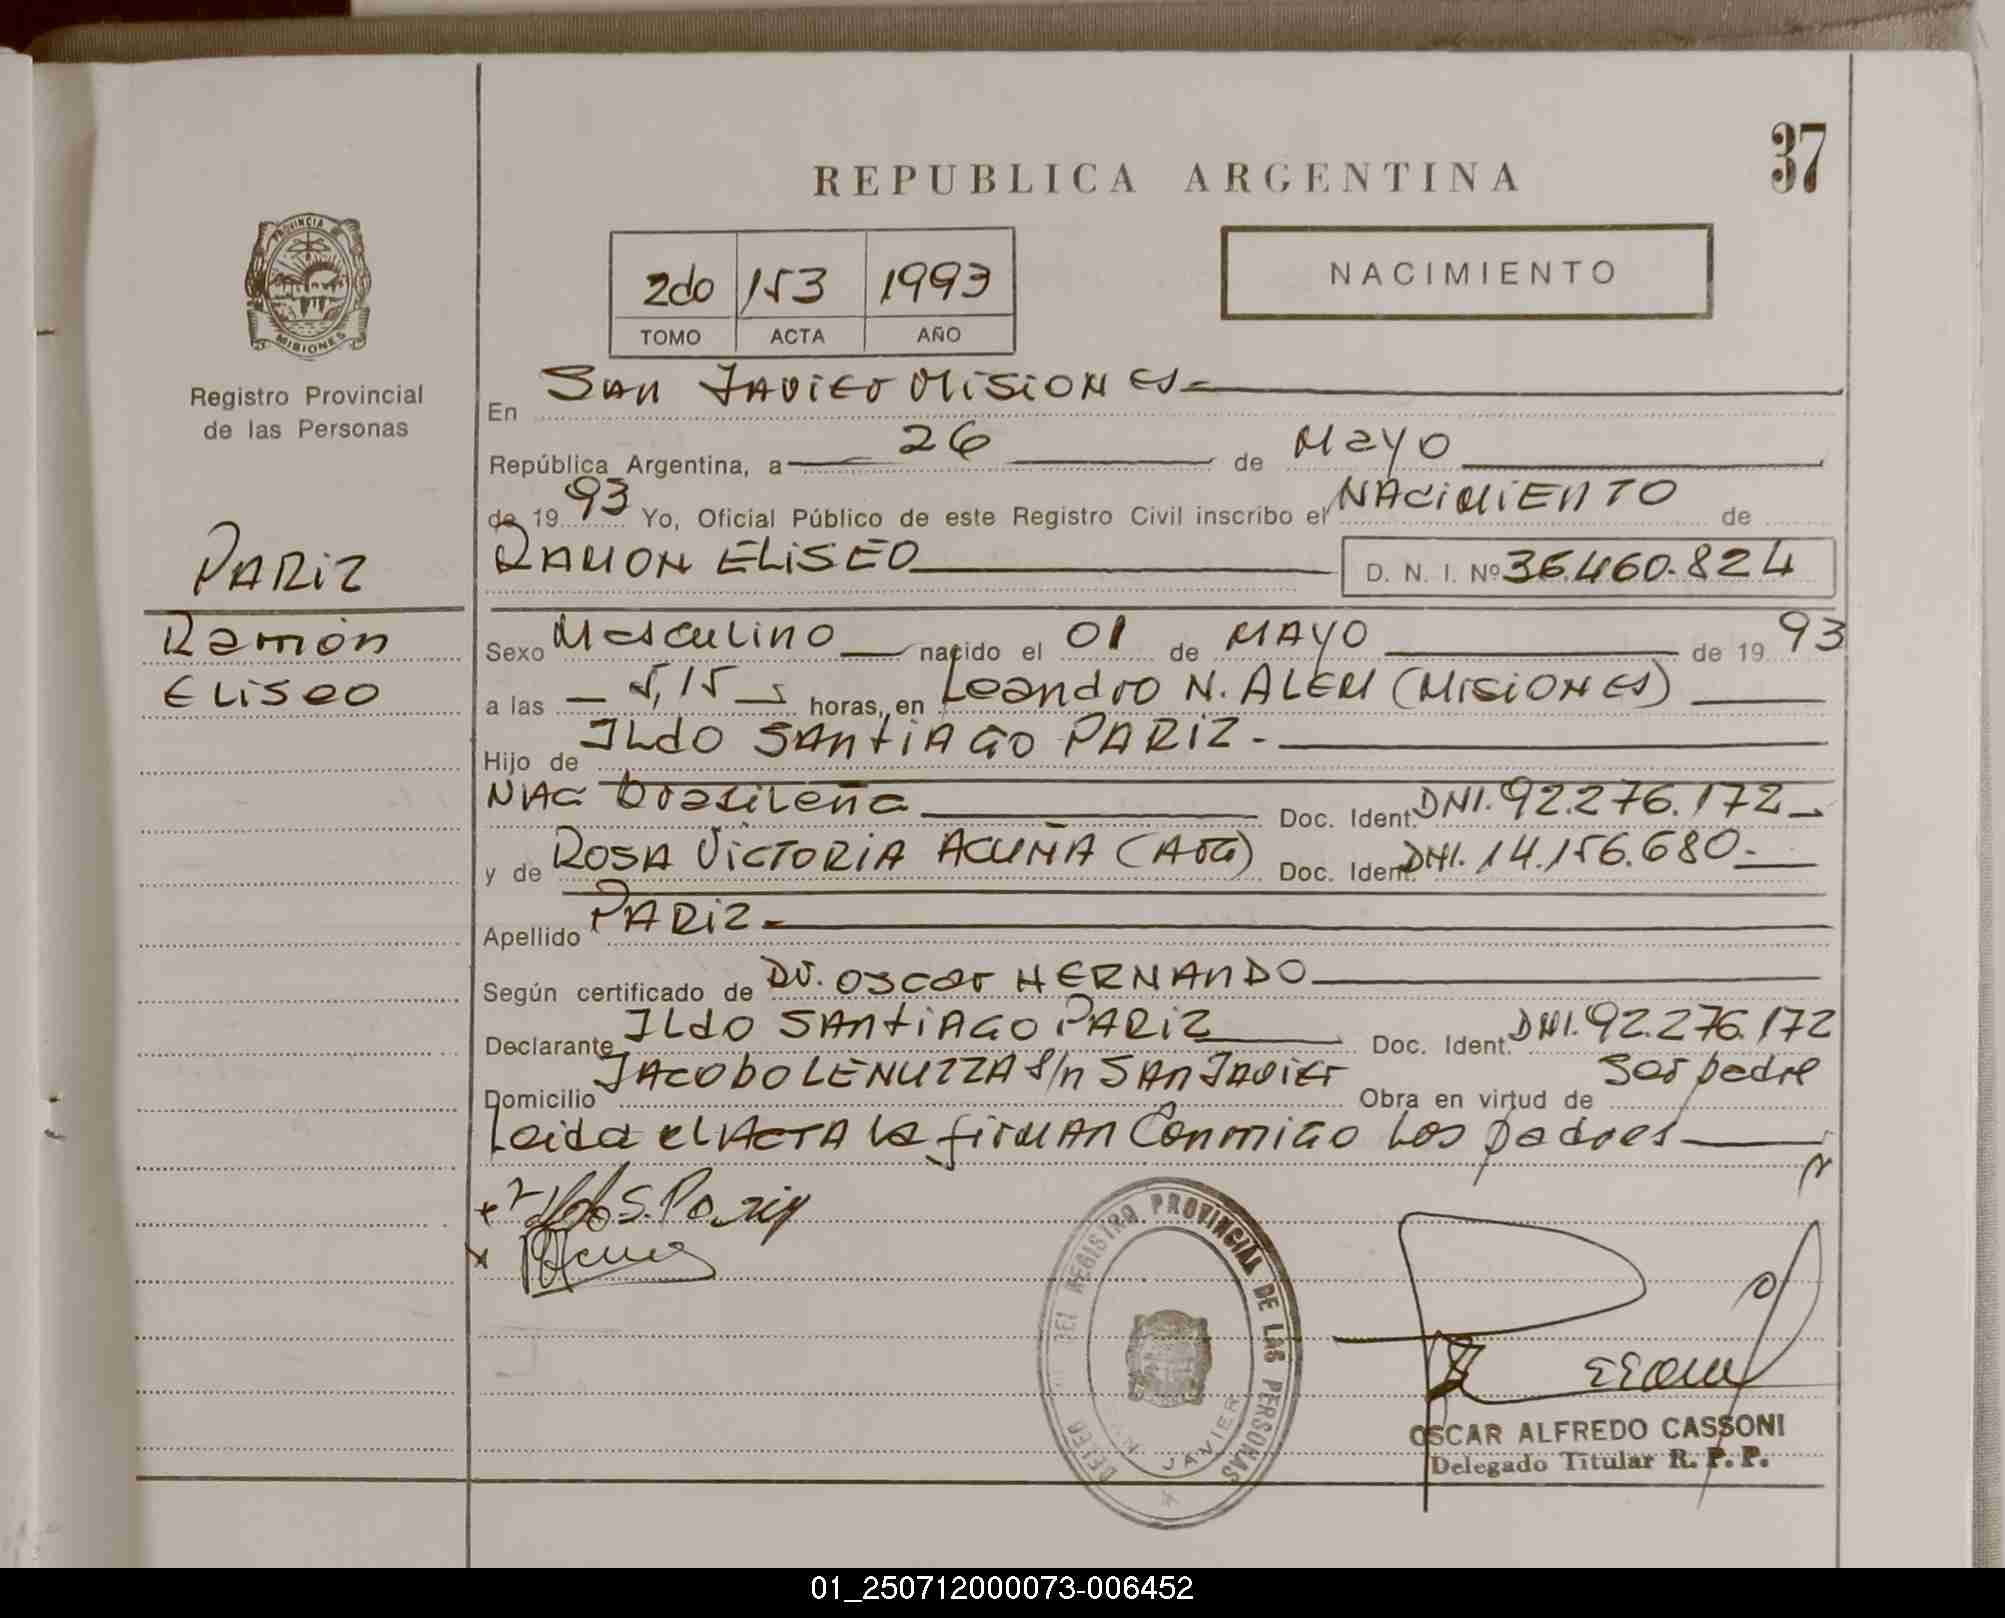 37
REPUBLICA ARGENTINA
PROVINCIA DE
MISIONES
2do 153 1993
TOMO ACTA AÑO
NACIMIENTO
Registro Provincial
de las Personas
PARIZ
Ramón
Eliseo
En San Javier Misiones
República Argentina, a 26 de Mayo
de 1993 Yo, Oficial Público de este Registro Civil inscribo el NACIMIENTO de
RAMON ELISEO D. N. I. Nº 36.460.824
Sexo Masculino nacido el 01 de MAYO de 1993
a las 5,15 horas, en Leandro N. ALEM (MISIONES)
Hijo de ILdO SANTIAGO PARIZ.
NAC brasileña Doc. Ident. DNI. 92.276.172
y de ROSA VICTORIA ACUÑA (Arg) Doc. Ident. DNI. 14.156.680.
Apellido PARIZ
Según certificado de Dr. Oscar HERNANDO
Declarante ILdO SANTIAGO PARIZ Doc. Ident. DNI. 92.276.172
Domicilio JACOBO LENUZZA S/n SAN JAVIER Obra en virtud de ser padre
Leida el ACTA la firman Conmigo los padres
Ildo S. Pariz
DEL REGISTRO PROVINCIAL DE LAS PERSONAS
JAVIER
OSCAR ALFREDO CASSONI
Delegado Titular R. P. P.
01_250712000073-006452